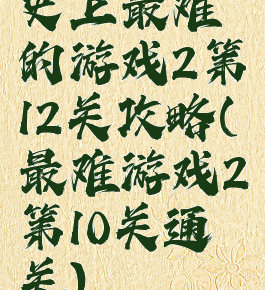 史上最难
的游戏2第
12关攻略(
最难游戏2
第10关通
关)